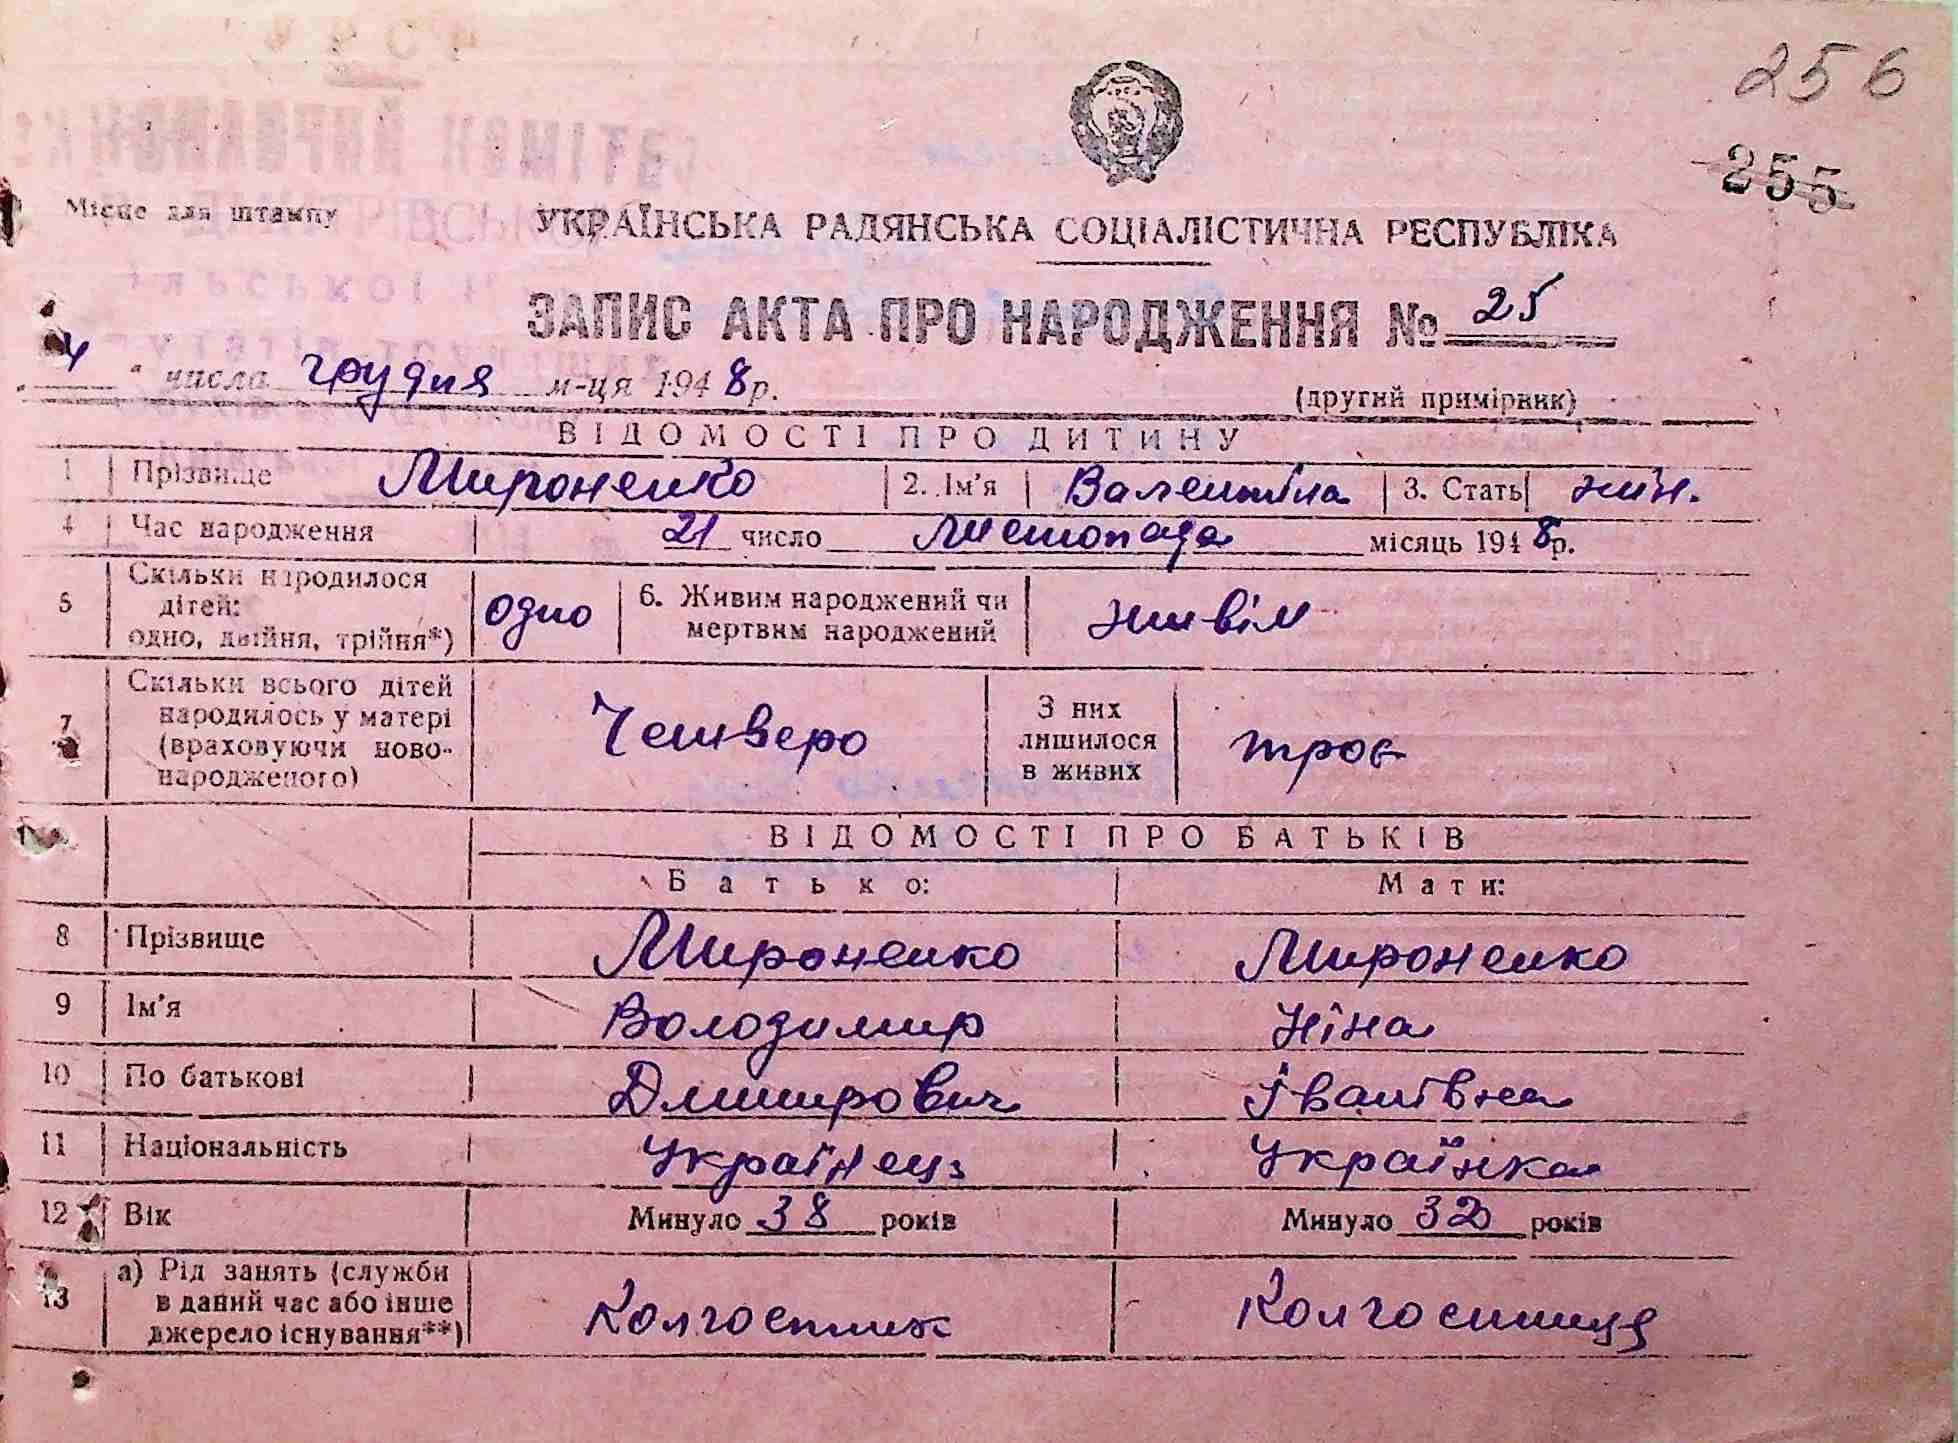 256
255
Місце для штампу
УКРАЇНСЬКА РАДЯНСЬКА СОЦІАЛІСТИЧНА РЕСПУБЛІКА
ЗАПИС АКТА ПРО НАРОДЖЕННЯ № 25
„ 4 “ числа грудня м-ця 1948 р.
(другий примірник)
ВІДОМОСТІ ПРО ДИТИНУ
1 Прізвище Мироненко 2. Ім'я Валентіна 3. Стать жін.
4 Час народження 21 число листопада місяць 1948 р.
5 Скільки народилося
дітей:
одно, двійня, трійня*) одно 6. Живим народжений чи
мертвим народжений живім
7 Скільки всього дітей
народилось у матері
(враховуючи ново-
народженого) Четверо З них
лишилося
в живих троє
ВІДОМОСТІ ПРО БАТЬКІВ
Батько: Мати:
8 Прізвище Мироненко Мироненко
9 Ім'я Володимир Ніна
10 По батькові Дмитрович Іванівна
11 Національність Українець Українка
12 Вік Минуло 38 років Минуло 32 років
13 а) Рід занять (служби
в даний час або інше
джерело існування**) Колгоспник Колгоспниця